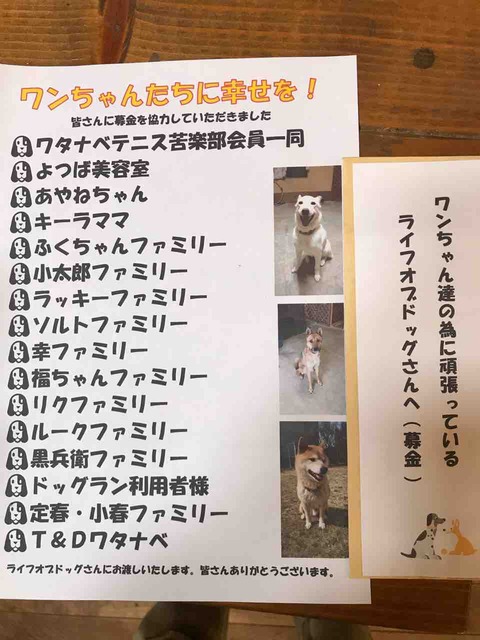 ワンちゃんたちに幸せを!
皆さんに募金を協力していただきました
ワタナベテニス苦楽部会員一同
よつば美容室
あやねちゃん
キーラママ
ふくちゃんファミリー
小太郎ファミリー
ラッキーファミリー
ソルトファミリー
幸ファミリー
福ちゃんファミリー
リクファミリー
ルークファミリー
黒兵衛ファミリー
ドッグラン利用者様
定春・小春ファミリー
T&Dワタナベ
ライフオブドッグさんにお渡しいたします。皆さんありがとうございます。
ワンちゃん達の為に頑張っている
ライフオブドッグさんへ(募金)